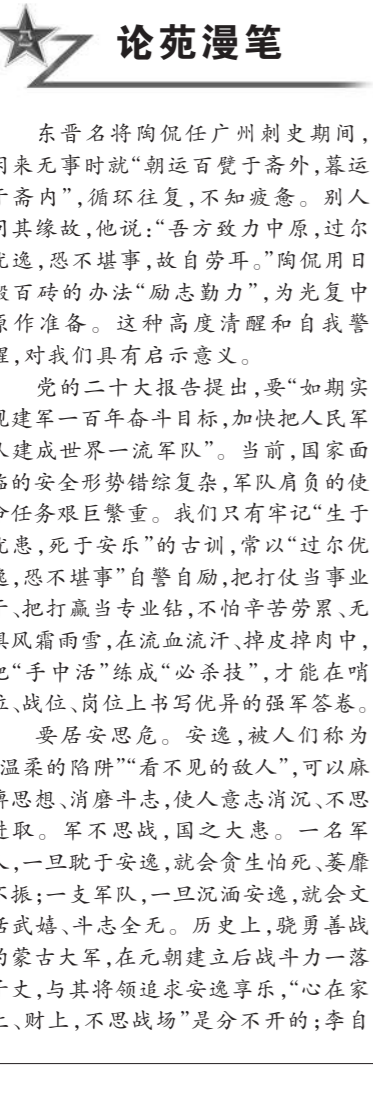 论苑漫笔
东晋名将陶侃任广州刺史期间，
闲来无事时就“朝运百甓于斋外，暮运
于斋内”，循环往复，不知疲惫。别人
问其缘故，他说：“吾方致力中原，过尔
优逸，恐不堪事，故自劳耳。”陶侃用日
搬百砖的办法“励志勤力”，为光复中
原作准备。这种高度清醒和自我警
醒，对我们具有启示意义。
党的二十大报告提出，要“如期实
现建军一百年奋斗目标，加快把人民军
队建成世界一流军队”。当前，国家面
临的安全形势错综复杂，军队肩负的使
命任务艰巨繁重。我们只有牢记“生于
忧患，死于安乐”的古训，常以“过尔优
逸，恐不堪事”自警自励，把打仗当事业
干、把打赢当专业钻，不怕辛苦劳累、无
惧风霜雨雪，在流血流汗、掉皮掉肉中，
把“手中活”练成“必杀技”，才能在哨
位、战位、岗位上书写优异的强军答卷。
要居安思危。安逸，被人们称为
“温柔的陷阱”“看不见的敌人”，可以麻
痹思想、消磨斗志，使人意志消沉、不思
进取。军不思战，国之大患。一名军
人，一旦耽于安逸，就会贪生怕死、萎靡
不振；一支军队，一旦沉湎安逸，就会文
恬武嬉、斗志全无。历史上，骁勇善战
的蒙古大军，在元朝建立后战斗力一落
千丈，与其将领追求安逸享乐，“心在家
上、财上，不思战场”是分不开的；李自